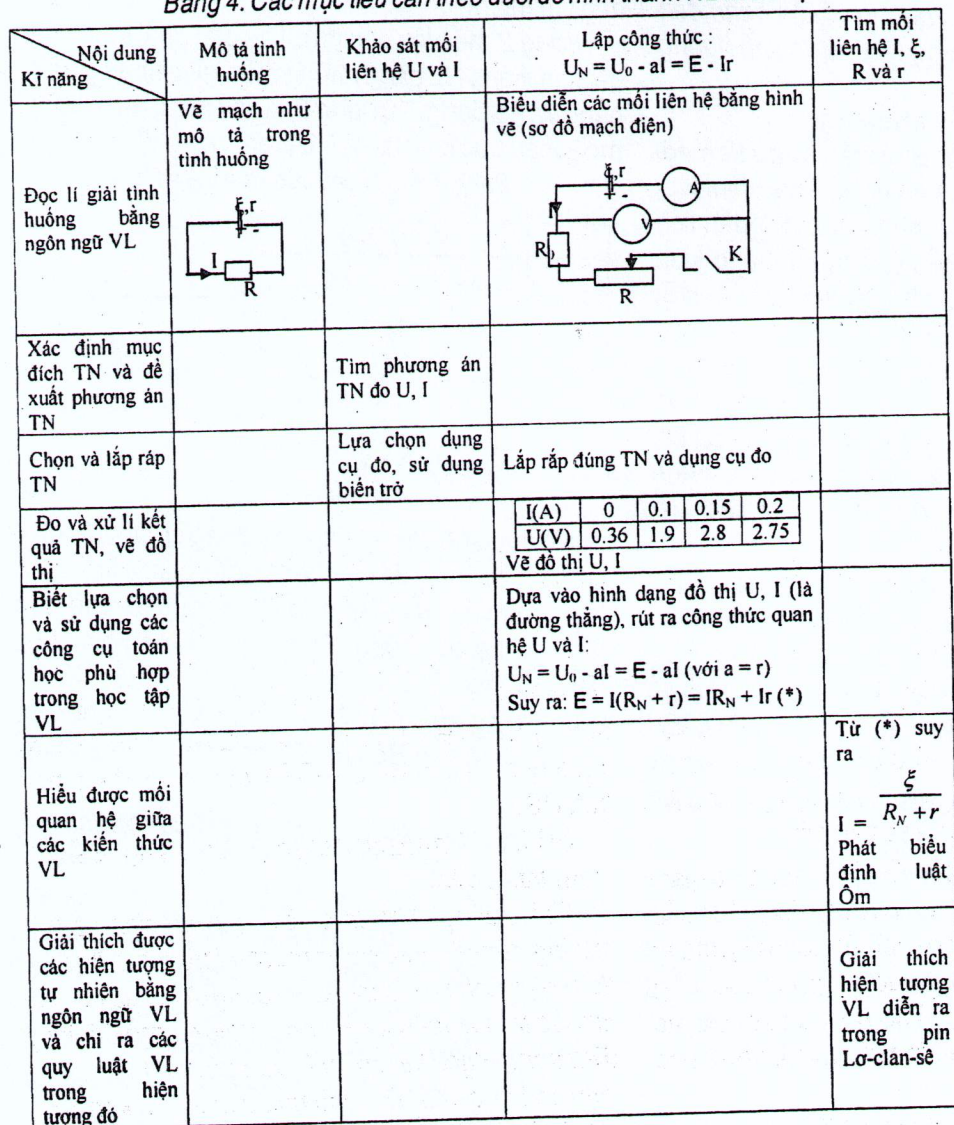 Bảng 4. Các mục tiêu cần theo dõi để hình thành
Nội dung
Kĩ năng
Mô tả tình
huống
Khảo sát mối
liên hệ U và I
Lập công thức :
U_N = U_0 - aI = E - Ir
Tìm mối
liên hệ I, ξ,
R và r
Đọc lí giải tình
huống bằng
ngôn ngữ VL
Vẽ mạch như
mô tả trong
tình huống
ξ,r
-
I
R
Biểu diễn các mối liên hệ bằng hình
vẽ (sơ đồ mạch điện)
ξ,r
-
A
I
V
R
K
R
Xác định mục
đích TN và đề
xuất phương án
TN
Tìm phương án
TN đo U, I
Chọn và lắp ráp
TN
Lựa chọn dụng
cụ đo, sử dụng
biến trở
Lắp rắp đúng TN và dụng cụ đo
Đo và xử lí kết
quả TN, vẽ đồ
thị
I(A) 0 0.1 0.15 0.2
U(V) 0.36 1.9 2.8 2.75
Vẽ đồ thị U, I
Biết lựa chọn
và sử dụng các
công cụ toán
học phù hợp
trong học tập
VL
Dựa vào hình dạng đồ thị U, I (là
đường thẳng), rút ra công thức quan
hệ U và I:
U_N = U_0 - aI = E - aI (với a = r)
Suy ra: E = I(R_N + r) = IR_N + Ir (*)
Hiểu được mối
quan hệ giữa
các kiến thức
VL
Từ (*) suy
ra
I = ξ / (R_N + r)
Phát biểu
định luật
Ôm
Giải thích được
các hiện tượng
tự nhiên bằng
ngôn ngữ VL
và chỉ ra các
quy luật VL
trong hiện
tượng đó
Giải thích
hiện tượng
VL diễn ra
trong pin
Lơ-clan-sê